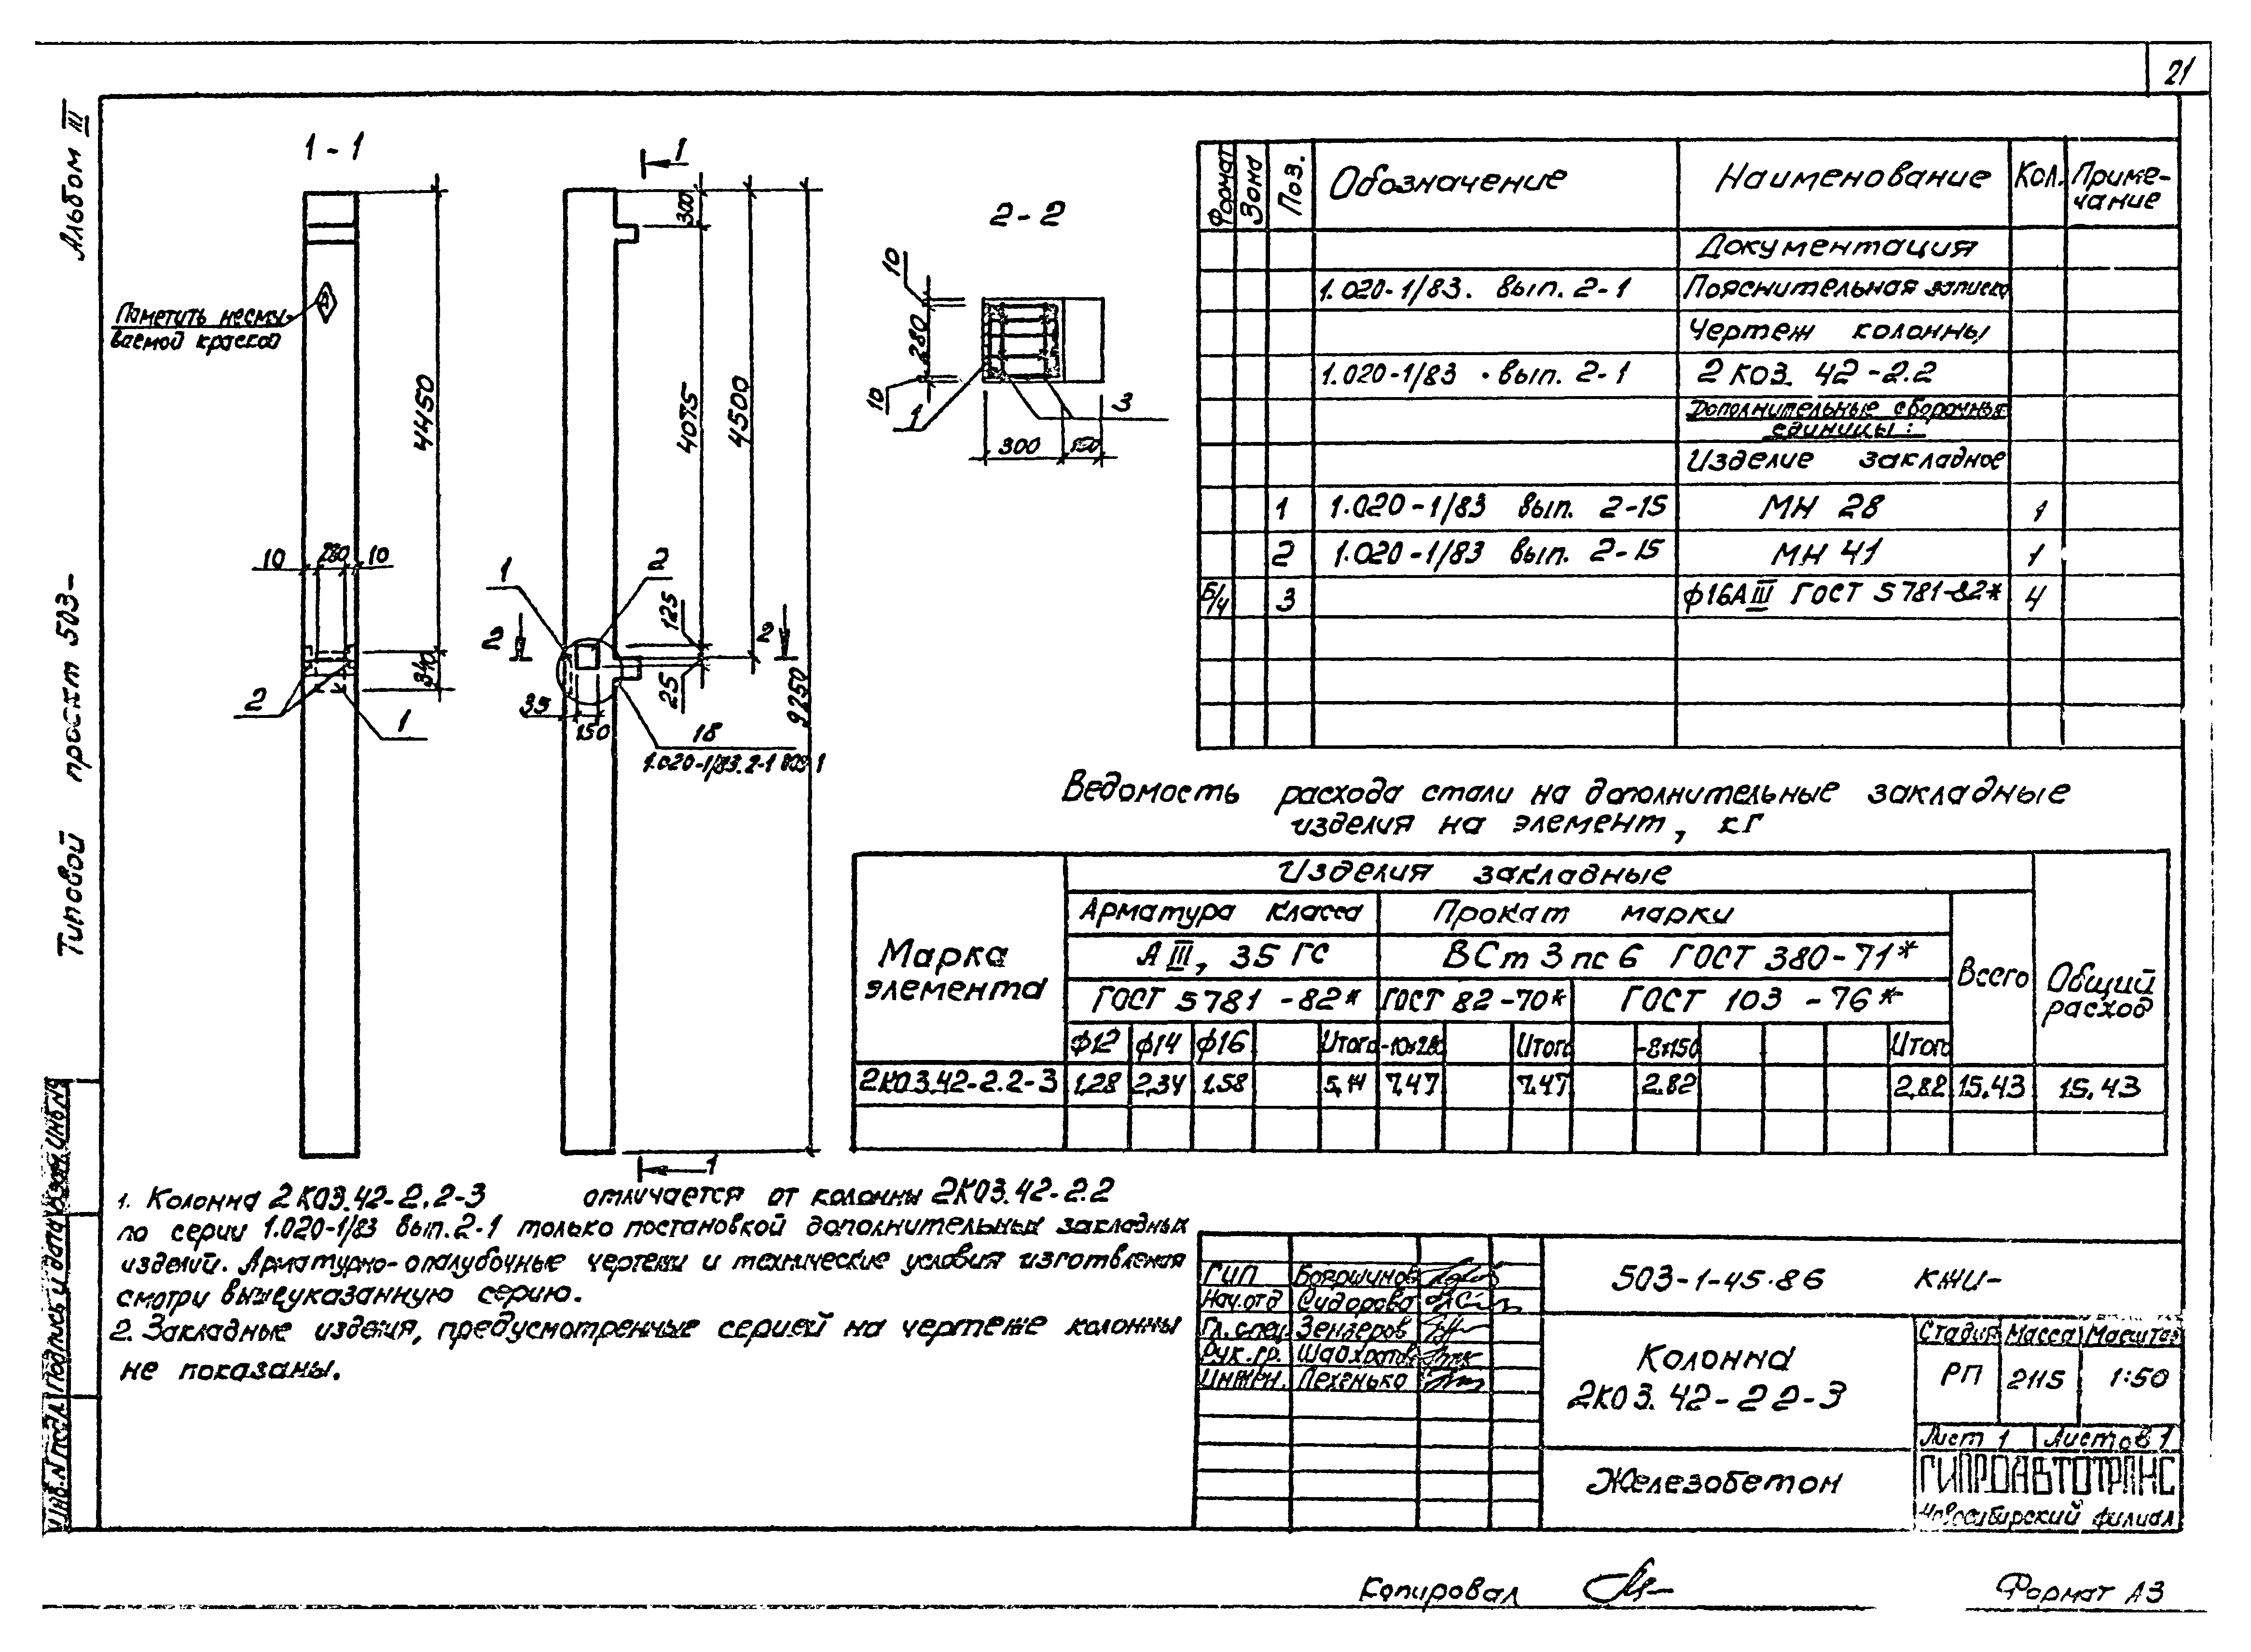 21
Альбом III
Типовой проект 503-
Инв.N подл. Подпись и дата Взам. инв.N
1-1
Пометить несмы-
ваемой краской
4450
10 280 10
340
2
1
1
300
4075
4500
9250
1
2
125
2
2
25
35
150
18
1.020-1/83.2-1
1
2-2
10
280
10
1
3
300 150
Формат Зона Поз. Обозначение Наименование Кол. Приме-
чание
Документация
1.020-1/83. вып. 2-1 Пояснительная записка
Чертеж колонны
1.020-1/83 . вып. 2-1 2 КО3. 42-2.2
Дополнительные сборочные
единицы:
Изделие закладное
1 1.020-1/83 вып. 2-15 МН 28 1
2 1.020-1/83 вып. 2-15 МН 41 1
Б/ч 3 ф16АIII ГОСТ 5781-82* 4
Ведомость расхода стали на дополнительные закладные
изделия на элемент, кг
Марка
элемента
Изделия закладные
Арматура класса Прокат марки
АIII, 35 ГС ВСт 3 пс 6 ГОСТ 380-71*
Всего Общий
расход
ГОСТ 5781-82* ГОСТ 82-70* ГОСТ 103-76*
ф12 ф14 ф16 Итого -10х280 Итого -8х150 Итого
2КО3.42-2.2-3 1,28 2,34 1.58 5,14 7,47 7.47 2.82 2.82 15.43 15.43
1. Колонна 2КО3.42-2.2-3 отличается от колонны 2КО3.42-2.2
по серии 1.020-1/83 вып.2-1 только постановкой дополнительных закладных
изделий. Арматурно-опалубочные чертежи и технические условия изготвления
смотри вышеуказанную серию.
2. Закладные изделия, предусмотренные серией на чертеже колонны
не показаны.
ГИП Бояршинов
Нач.отд Сидорова
Гл.спец Зензеров
Рук.гр.
Инжен. Пехенько
503-1-45.86 КЖИ-
Колонна
2КО3. 42-2 2-3
Железобетон
Стадия Масса Масштаб
РП 2115 1:50
Лист 1 Листов 1
ГИПРОАВТОТРАНС
Новосибирский филиал
Копировал
Формат А3